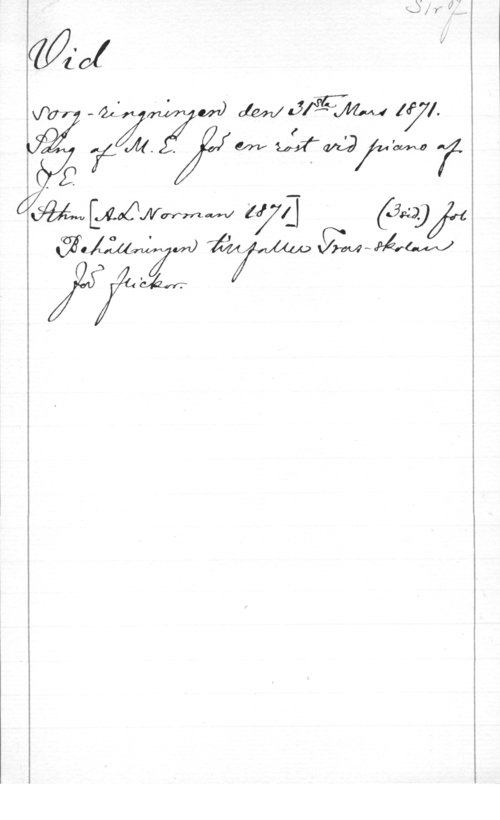 Vid
sorg-ringningen den 31sta Mars 1871.
Sång af M. E. för en röst vid piano af
J. E.
Sthm [A. L. Norman 1871] (3 sid.) fol
Behållningen tillfaller Fras-skolan
för flickor.